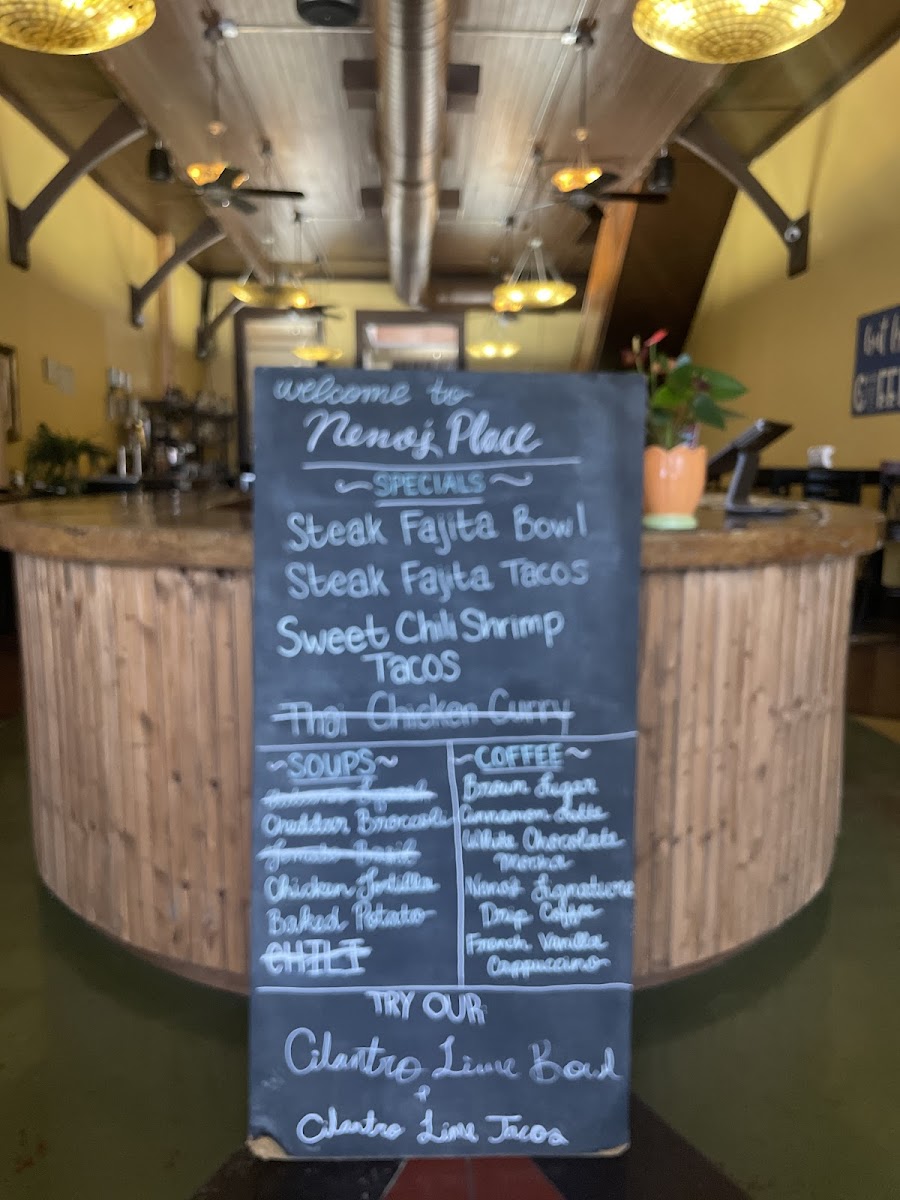 welcome to
Nena's Place
~SPECIALS~
Steak Fajita Bowl
Steak Fajita Tacos
Sweet Chili Shrimp
TACOS
Thai Chicken Curry
~SOUPS~
Cheddar Broccoli
Tomato Basil
Chicken Tortilla
Baked Potato
CHILI
~COFFEE~
Brown Sugar
Cinnamon Latte
White Chocolate
Mocha
Nena's Signature
Drip Coffee
French Vanilla
Cappuccino
TRY OUR
Cilantro Lime Bowl
+
Cilantro Lime Tacos